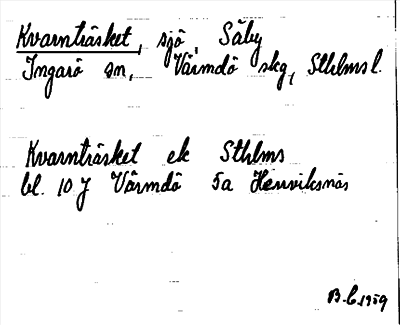 Kvarnträsket, sjö, Säby
Ingarö sn, Värmdö skg, Sthlms l.
Kvarnträsket ek Sthlms
bl. 10 J Värmdö 5a Henviksnäs
B.C. 1959